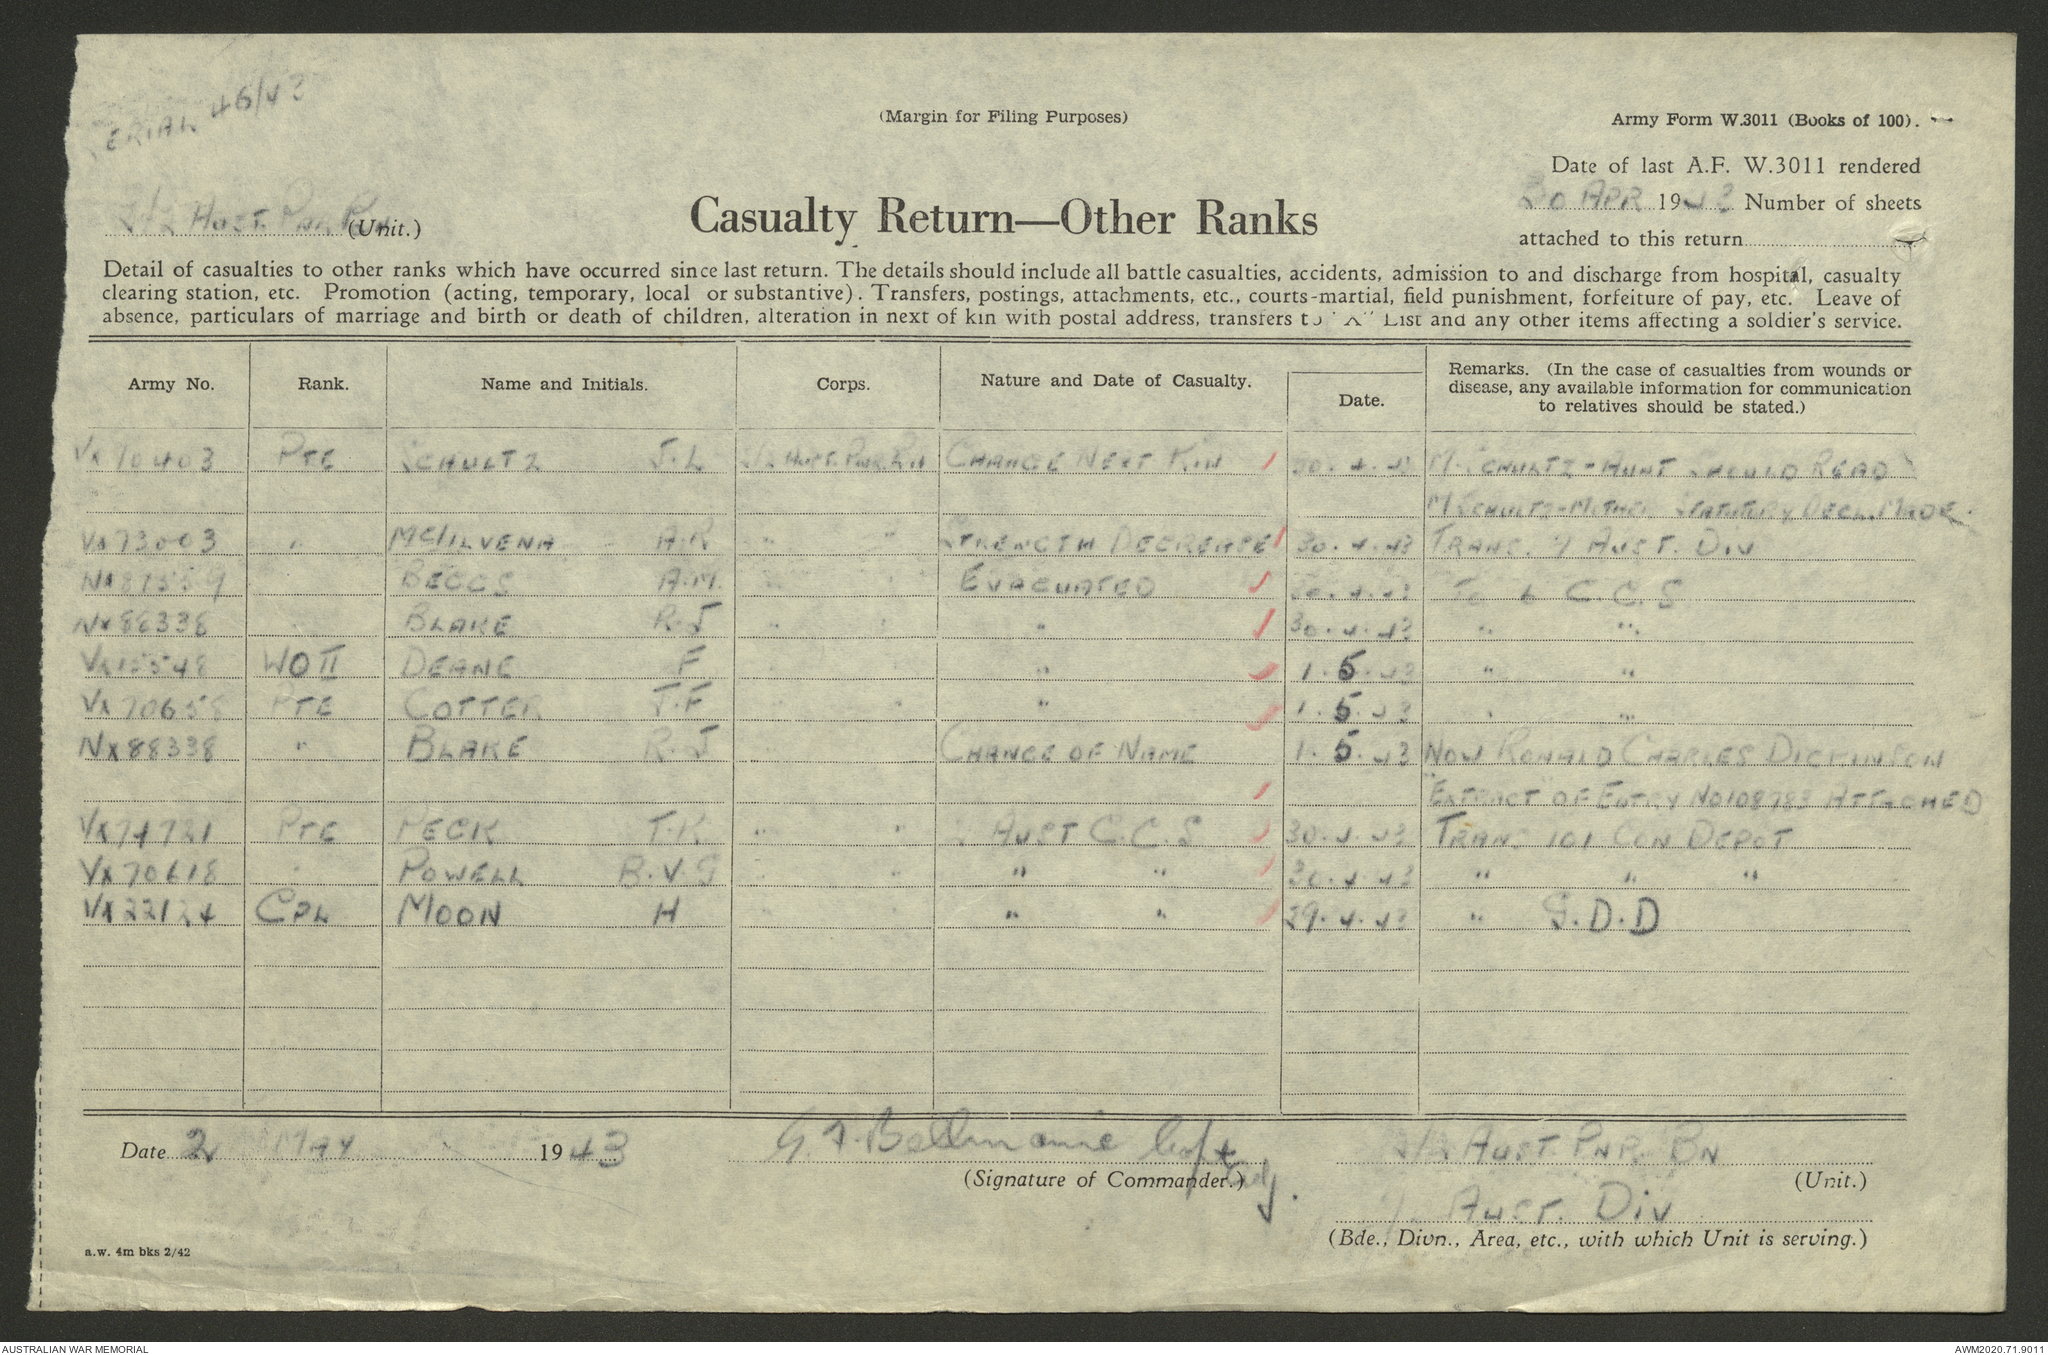 SERIAL 46/43
(Margin for Filing Purposes)
Army Form W.3011 (Books of 100).
Date of last A.F. W.3011 rendered
30 APR 1943 Number of sheets
attached to this return
2/2 AUST. PNR BN (Unit.)
Casualty Return—Other Ranks
Detail of casualties to other ranks which have occurred since last return. The details should include all battle casualties, accidents, admission to and discharge from hospital, casualty
clearing station, etc. Promotion (acting, temporary, local or substantive). Transfers, postings, attachments, etc., courts-martial, field punishment, forfeiture of pay, etc. Leave of
absence, particulars of marriage and birth or death of children, alteration in next of kin with postal address, transfers to "X" List and any other items affecting a soldier's service.
Army No. Rank. Name and Initials. Corps. Nature and Date of Casualty. Date. Remarks. (In the case of casualties from wounds or
disease, any available information for communication
to relatives should be stated.)
VX70403 PTE SCHULTZ J.L 2/2 AUST. PNR BN CHANGE NEXT KIN 30.4.43 M. SCHULTZ - AUNT SHOULD READ
M SCHULTZ - MOTHER STATUTORY DECL. MADE.
VX73003 " MCILVENA A.R " " STRENGTH DECREASE 30.4.43 TRANS. 7 AUST. DIV
BEGGS A.M. EVACUATED 30.4.43 TO 6 C.C.S
NX88338 BLAKE R.J " " " 30.4.43 " "
VX15548 WO II DEANE F " 1.5.43 " "
VX70658 PTE COTTER J.F " 1.5.43 " "
NX88338 " BLAKE R.J CHANGE OF NAME 1.5.43 NOW RONALD CHARLES DICKINSON
"EXTRACT OF ENTRY NO 108783" ATTACHED
VX74721 PTE PECK T.K " " 2 AUST C.C.S 30.4.43 TRANS 101 CON DEPOT
VX70618 " POWELL B.V.G " " " " 30.4.43 " " "
VX22124 CPL MOON H " " " " 29.4.43 " G.D.D
Date 2 MAY 1943 Capt Adj. 2/2 AUST. PNR. BN
(Signature of Commander.) (Unit.)
7 AUST. DIV
(Bde., Divn., Area, etc., with which Unit is serving.)
a.w. 4m bks 2/42
AUSTRALIAN WAR MEMORIAL AWM2020.71.9011